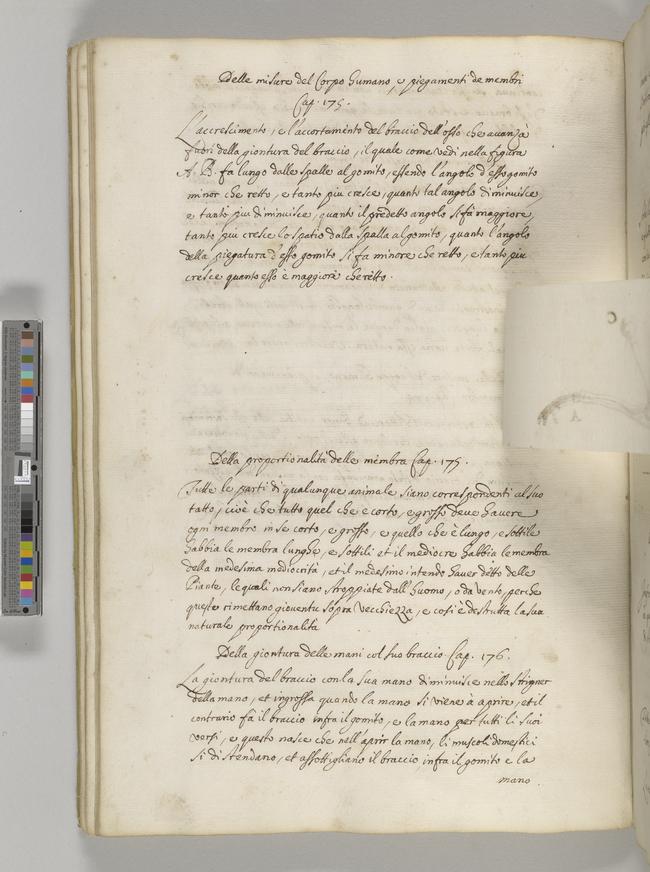 Delle misure del Corpo humano, e piegamenti de membri
Cap. 175.
L'accrescimento, e l'accortamento del braccio dell'osso che avanza
fuori della giontura del braccio, il quale come vedi nella figura
A. B. fa lungo dalle spalle al gomito, essendo l'angolo d'esso gomito
minor che retto, e tanto piu cresce, quanto tal angolo diminuisce,
e tanto piu diminuisce, quanto il predetto angolo si fa maggiore,
tanto piu cresce lo spatio dalla spalla al gomito, quanto l'angolo
della piegatura d'esso gomito si fa minore che retto, e tanto piu
cresce quanto esso è maggiore che retto.
Della proportionalità delle membra Cap. 175.
Tutte le parti di qualunque animale siano correspondenti al suo
tatto, cioè che tutto quel che è corto, e grosso deve havere
ogni membro in se corto, e grosso, e quello che è lungo, e sottile
habbia le membra lunghe, e sottili et il mediocre habbia le membra
della medesima mediocrità, et il medesimo intendo haver detto delle
Piante, le quali non siano stroppiate dall'huomo, o da vento, perche
queste rimettano gioventu sopra vecchiezza, e cosi è destrutta la sua
naturale proportionalità
Della giontura delle mani col suo braccio. Cap. 176.
La giontura del braccio con la sua mano diminuisce nello strigner
della mano, et ingrossa quando la mano si viene à aprire, et il
contrario fà il braccio infra il gomito, e la mano per tutti li suoi
versi, e questo nasce che nell'aprir la mano, li muscoli domestici
si distendano, et assottigliano il braccio infra il gomito e la
mano
A